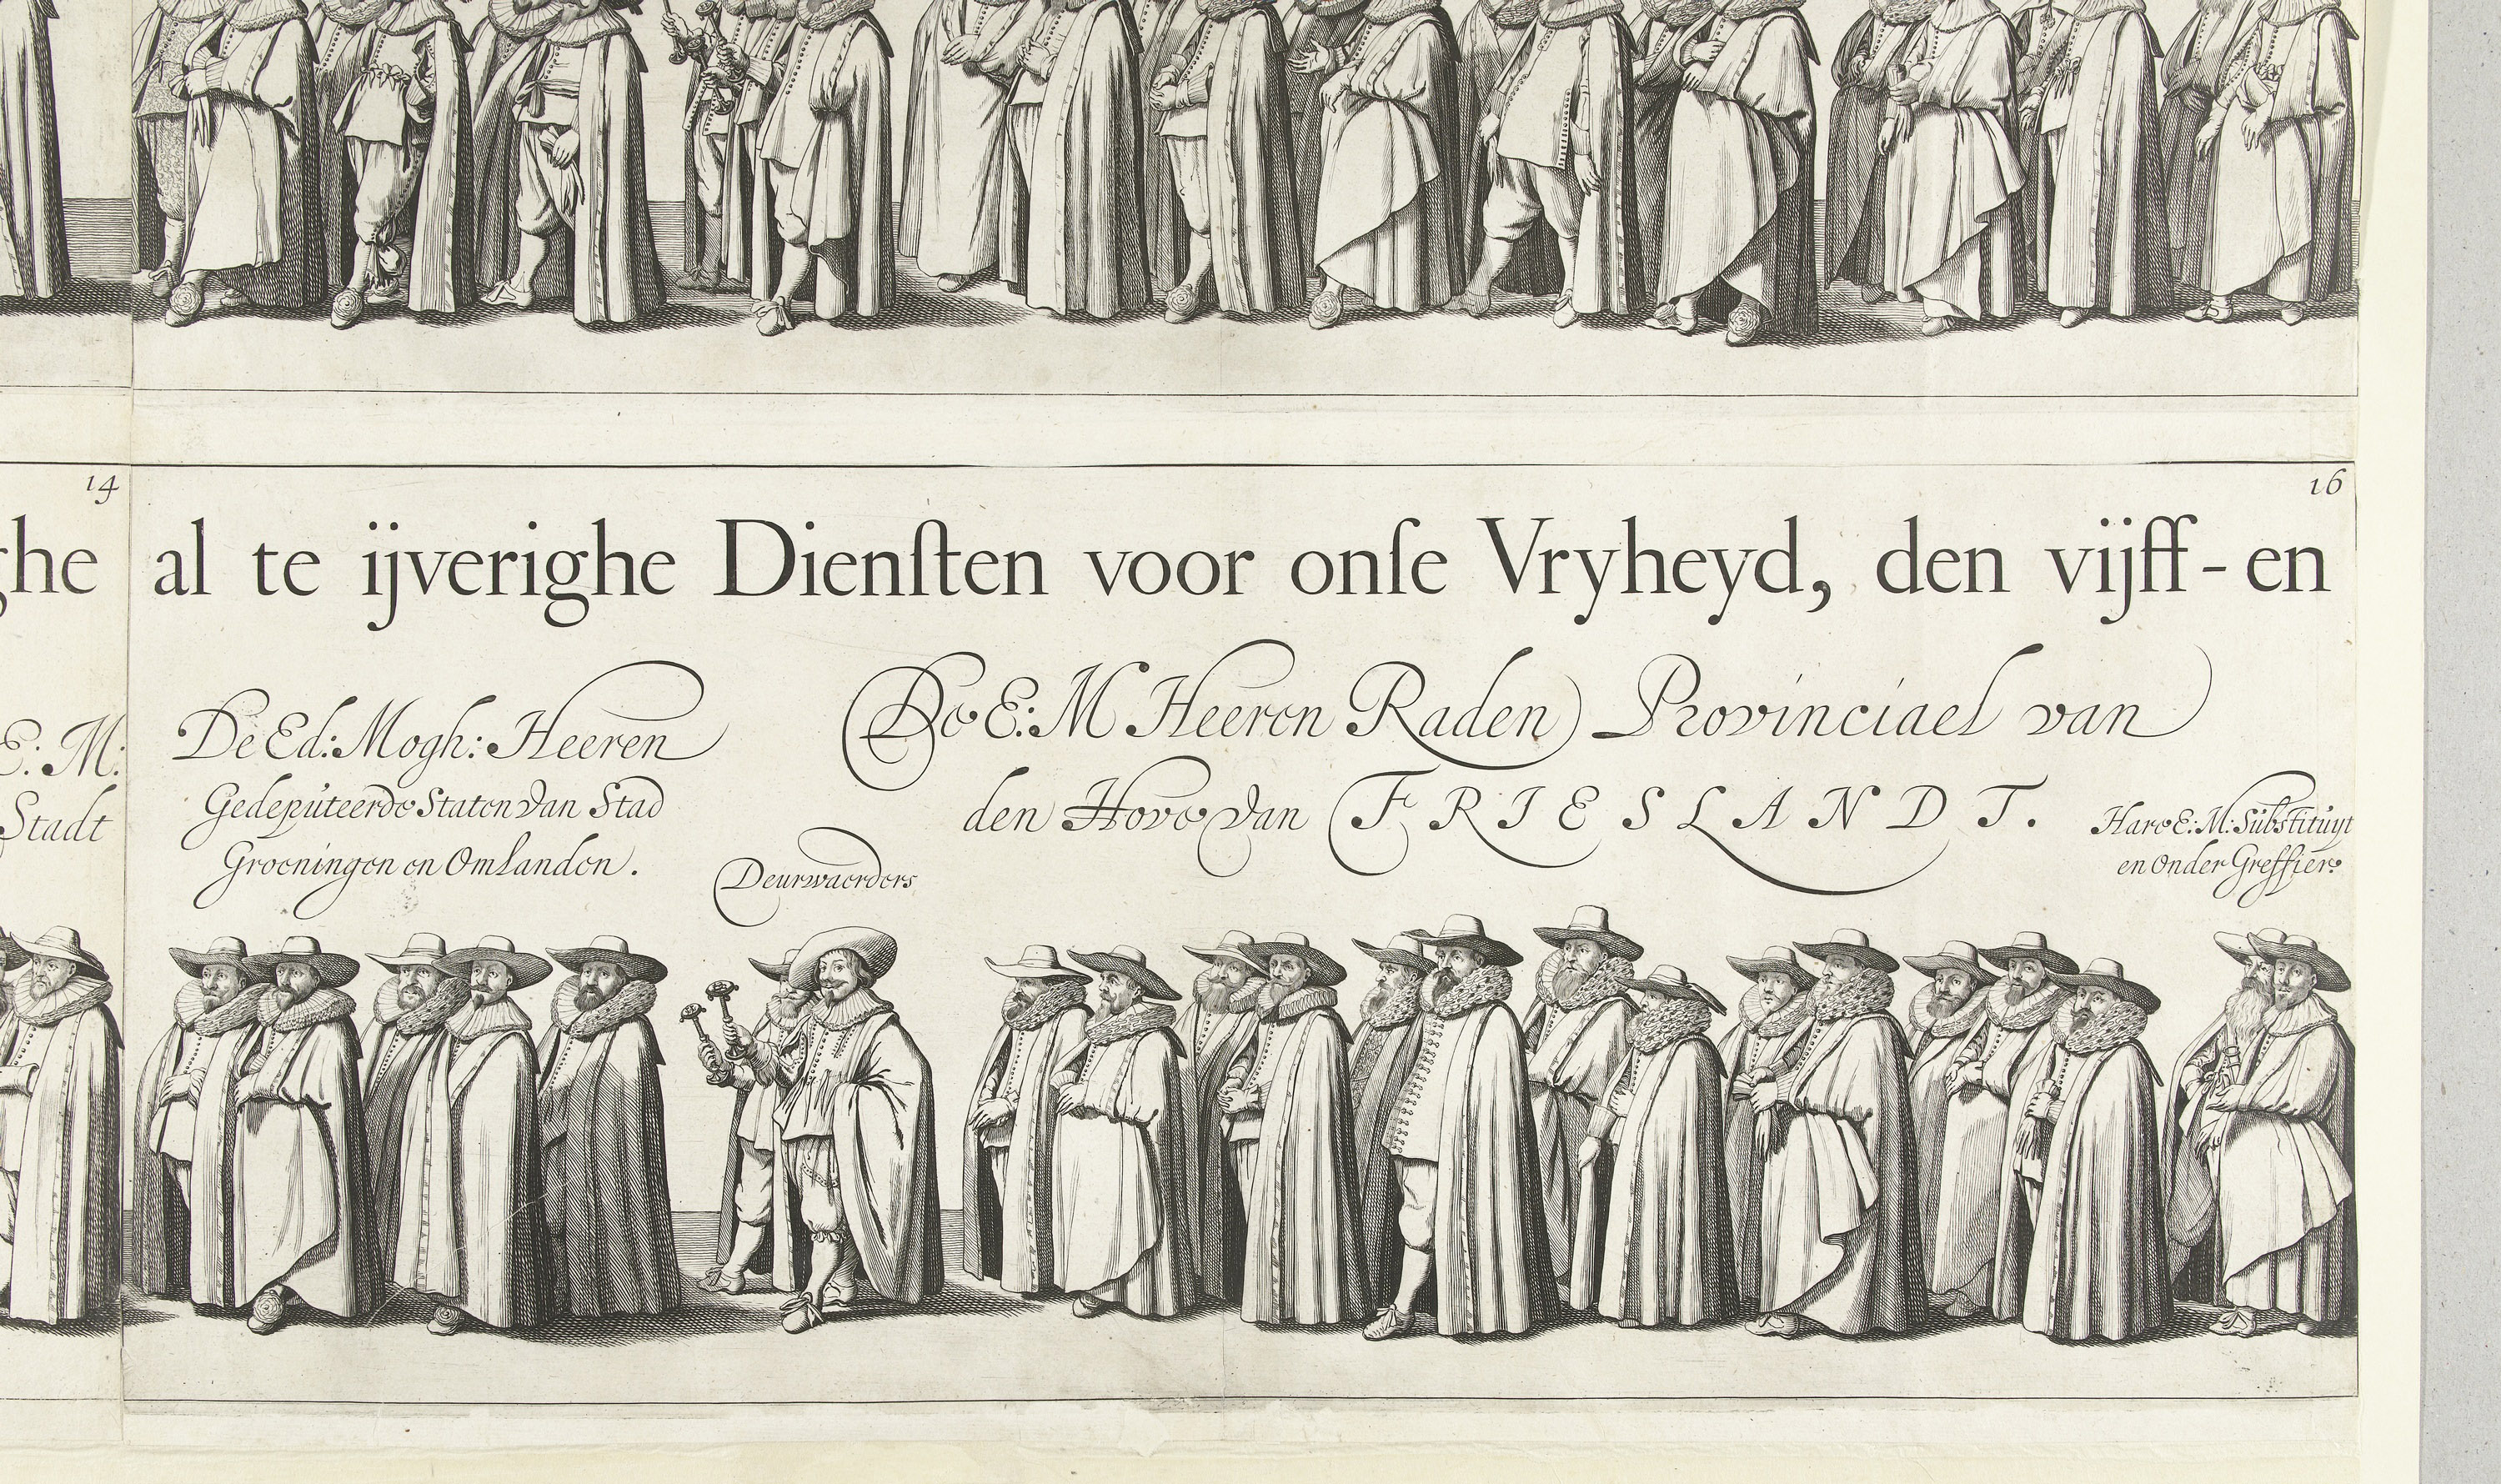 14
16
ghe al te ijverighe Dienſten voor onſe Vryheyd, den vijff-en
E: M:
Stadt
De Ed: Mogh: Heeren
Gedeputeerde Staten van Stad
Groeningen en Omlanden.
Deurwaerders
De E: M Heeren Raden Provinciael van
den Hove van FRIESLANDT.
Hare E: M: Substituyt
en Onder Greffier.